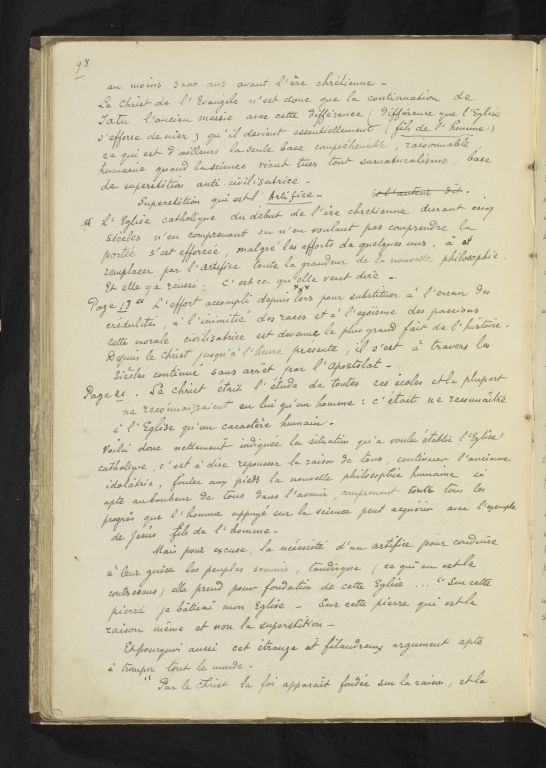 98
en moins 3000 ans avant l'ère chrétienne -
Le Christ de l'Evangile n'est donc que la continuation de
Tatu l'ancien messie avec cette différence (différence que l'Eglise
s'efforce de nier) qu'il devient essentiellement (fils de l'homme)
ce qui est d'ailleurs la seule base compréhensible, raisonnable
humaine quand la science vient tuer tout surnaturalisme, base
de superstition anti-civilisatrice -
Superstition qui est l'Artifice - Et l'auteur dit.
L'Eglise catholique du début de l'ère chrétienne durant cinq
siècles n'en comprenant ou n'en voulant pas comprendre la
portée s'est efforcée, malgré les efforts de quelques uns, à
remplacer par l'artifice toute la grandeur de la nouvelle philosophie.
Et elle y a réussi : C'est ce qu'elle veut dire -
Page 13 " l'effort accompli depuis lors pour substituer à l'erreur des
crédulités, à l'inimitié des races et à l'égoïsme des passions
cette morale civilisatrice est devenue le plus grand fait de l'histoire.
Depuis le Christ jusqu'à l'heure présente, il s'est à travers les
siècles continué sans arrêt par l'Apostolat -
Page 21. Le Christ était l'étude de toutes ces écoles et la plupart
ne reconnaissaient en lui qu'un homme : c'était ne reconnaître
à l'Eglise qu'un caractère humain.
Voilà donc nettement indiquée la situation qu'a voulu établir l'Eglise
catholique, c'est à dire repousser la raison de tous, continuer l'ancienne
idolâtrie, fouler aux pieds la nouvelle philosophie humaine si
apte au bonheur de tous dans l'avenir, comprenant toute tous les
progrès que l'homme appuyé sur la science peut acquérir avec l'exemple
de Jésus fils de l'homme.
Mais pour excuse, la nécessité d'un artifice pour conduire
à leur guise les peuples soumis, tandisque (ce qui en est le
contresens) elle prend pour fondation de cette Eglise ... "Sur cette
pierre je bâtirai mon Eglise - Sur cette pierre qui est la
raison même et non la superstition -
Et pourquoi aussi cet étrange et filandreux argument apte
à tromper tout le monde -
" Par le Christ la foi apparaît fondée sur la raison, et la